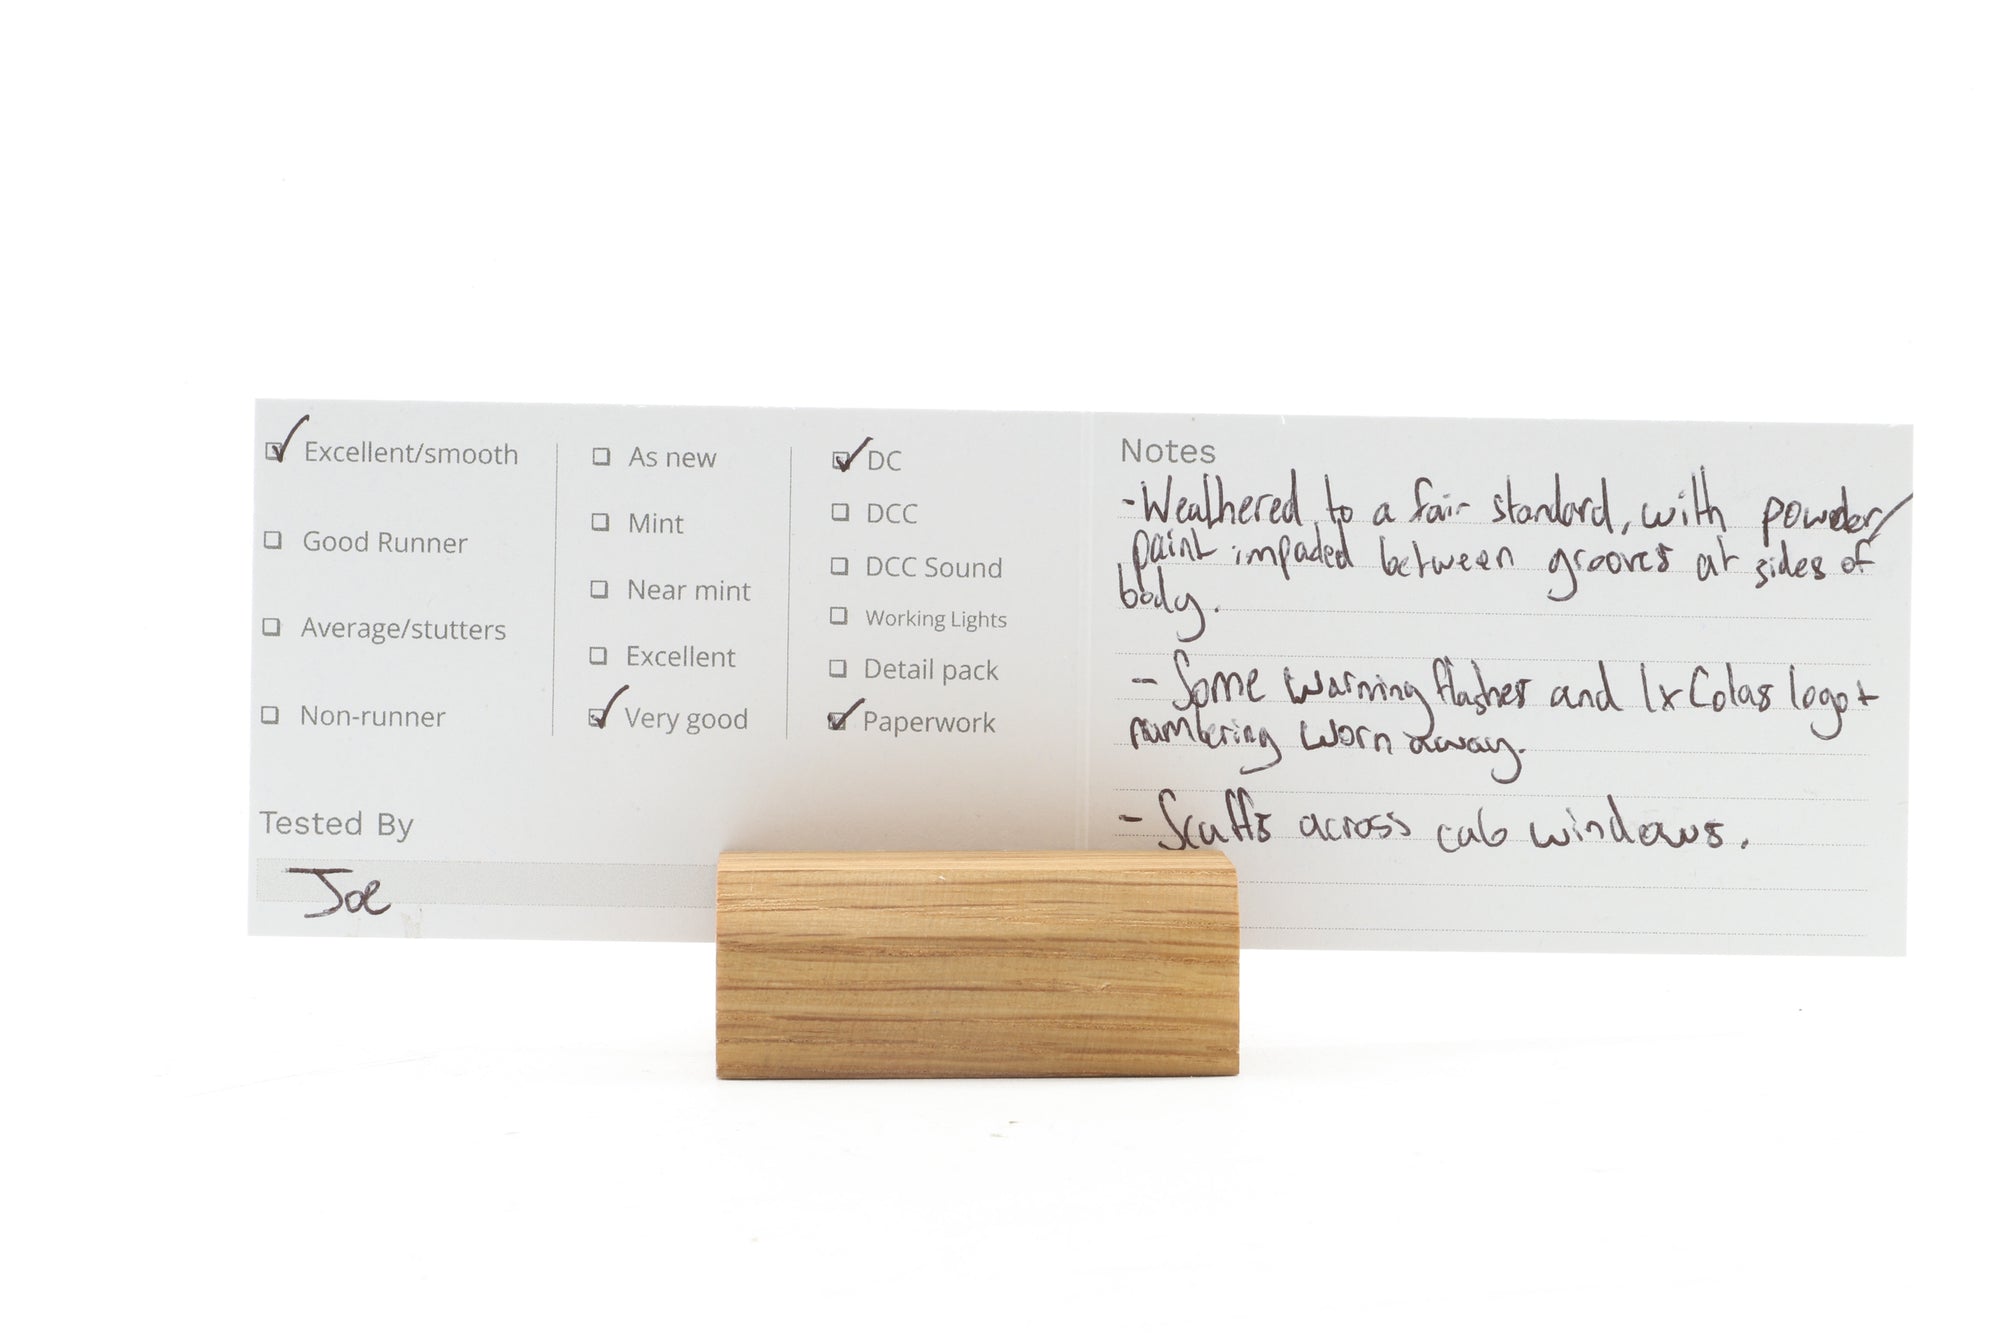 Excellent/smooth
Good Runner
Average/stutters
Non-runner
As new
Mint
Near mint
Excellent
Very good
DC
DCC
DCC Sound
Working Lights
Detail pack
Paperwork
Tested By
Joe
Notes
- Weathered, to a fair standard, with powder/
paint impaded between grooves at sides of
body.
- Some warning flashes and 1x Colas logo +
numbering worn away.
- Scuffs across cab windows.